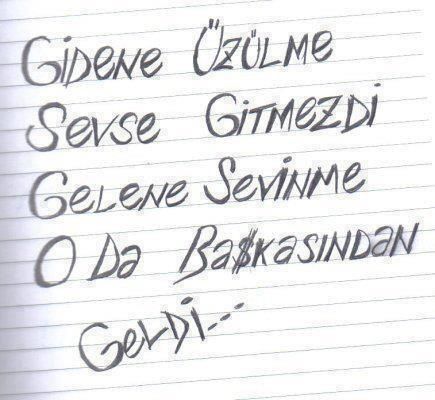 GİDENE ÜZÜLME
SEVSE GİTMEZDİ
GELENE SEVİNME
O Da BaŞKASINDaN
GELDİ...